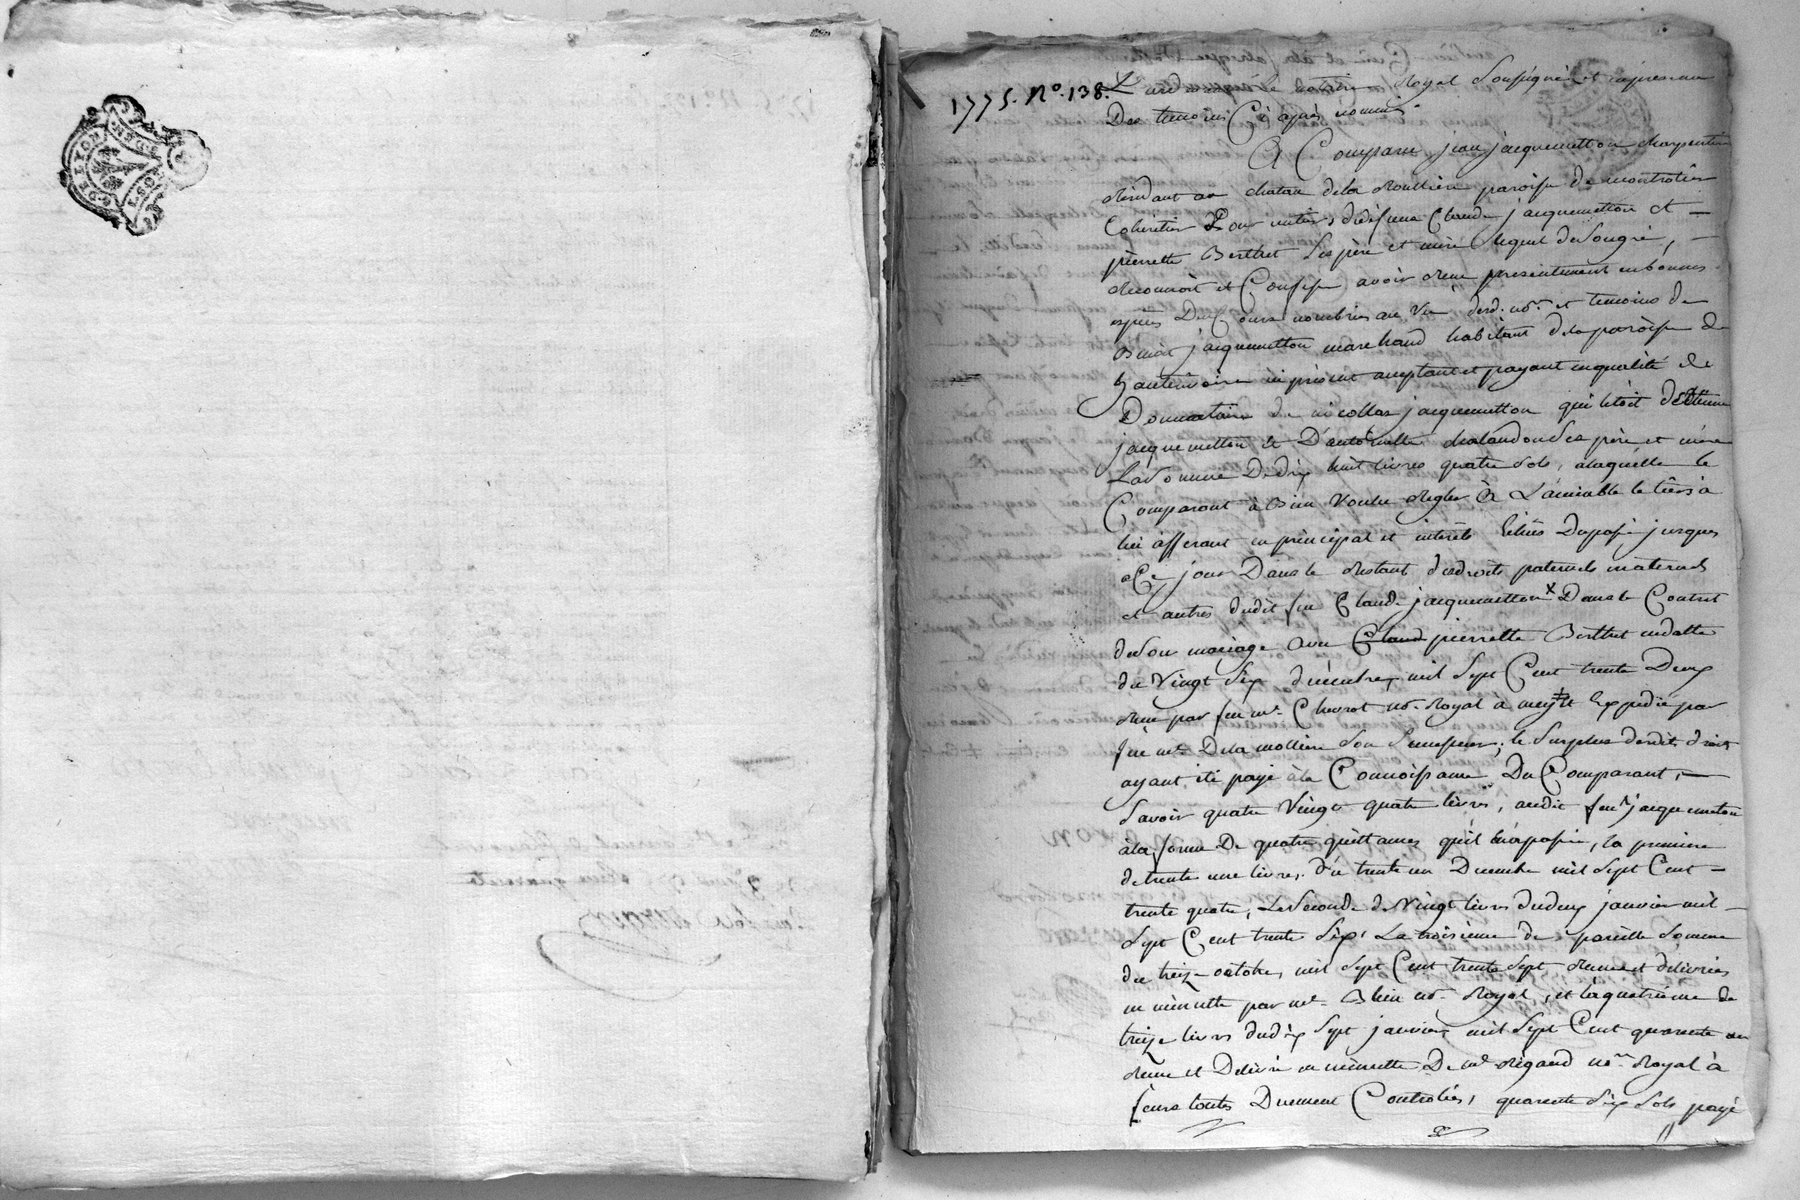 DE LYON
1775. No. 138.
Pardevant Le notaire Royal soussigné et en presence
Des temoins Cy après nommés
A Comparu jean jacquemetton charpentier
residant au chateau de la Roullière paroisse de montrotier
Coheritier Pour un tiers dudit feu Claude jacquemetton et -
pierrette Berthet ses père et mère lequel de son gré, -
reconnoit et Confesse avoir reçu presentement en bonnes
espèces De Cours nombrées au Vu desd. nore et temoins de
Benoit jacquemetton marchand habitant de la paroisse de
hauterivoire icy présent acceptant et payant en qualité de
Donnataire de nicollas jacquemetton qui letoit d'Etienne
jacquemetton et D'antoinette chalandon ses père et mère
La somme De dix huit livres quatre sols, alaquelle le
Comparant à Bien Voulu Regler A L'amiable le tiers à
lui afferant en principal et interêts Echus Du passé jusques
a Ce jour Dans le Restant des droits paternels maternels
et autres dudit feu Claude jacquemetton x Dans le Contrat
de son mariage avec Claud pierrette Berthet en datte
du Vingt six décembre mil sept Cent trente Deux
reçu par feu me Chevrot no. Royal a meys Expedié par
feu me Delamollière son Successeur; le surplus desdits droits
ayant été payé à la Connoissance Du Comparant, -
Savoir quatre Vingt quatre livres, audit feu jacquemetton
à la forme De quatre quittances qu'il En a passé, la premiere
de trente une livres, du trente un Decembre mil sept Cent -
trente quatre, La Seconde de Vingt livres du deux janvier mil -
sept Cent trente six, La troisieme de pareille somme
du treize octobre mil sept Cent trente sept reçues et délivrées
en minutte par me Blein no. Royal, et la quatrième de
treize livres du dix sept janvier mil sept Cent quarante un
reçue et Delivré en minutte De me Rigaud nore Royal à
feurs toutes Duement Controlées, quarente six sols payé